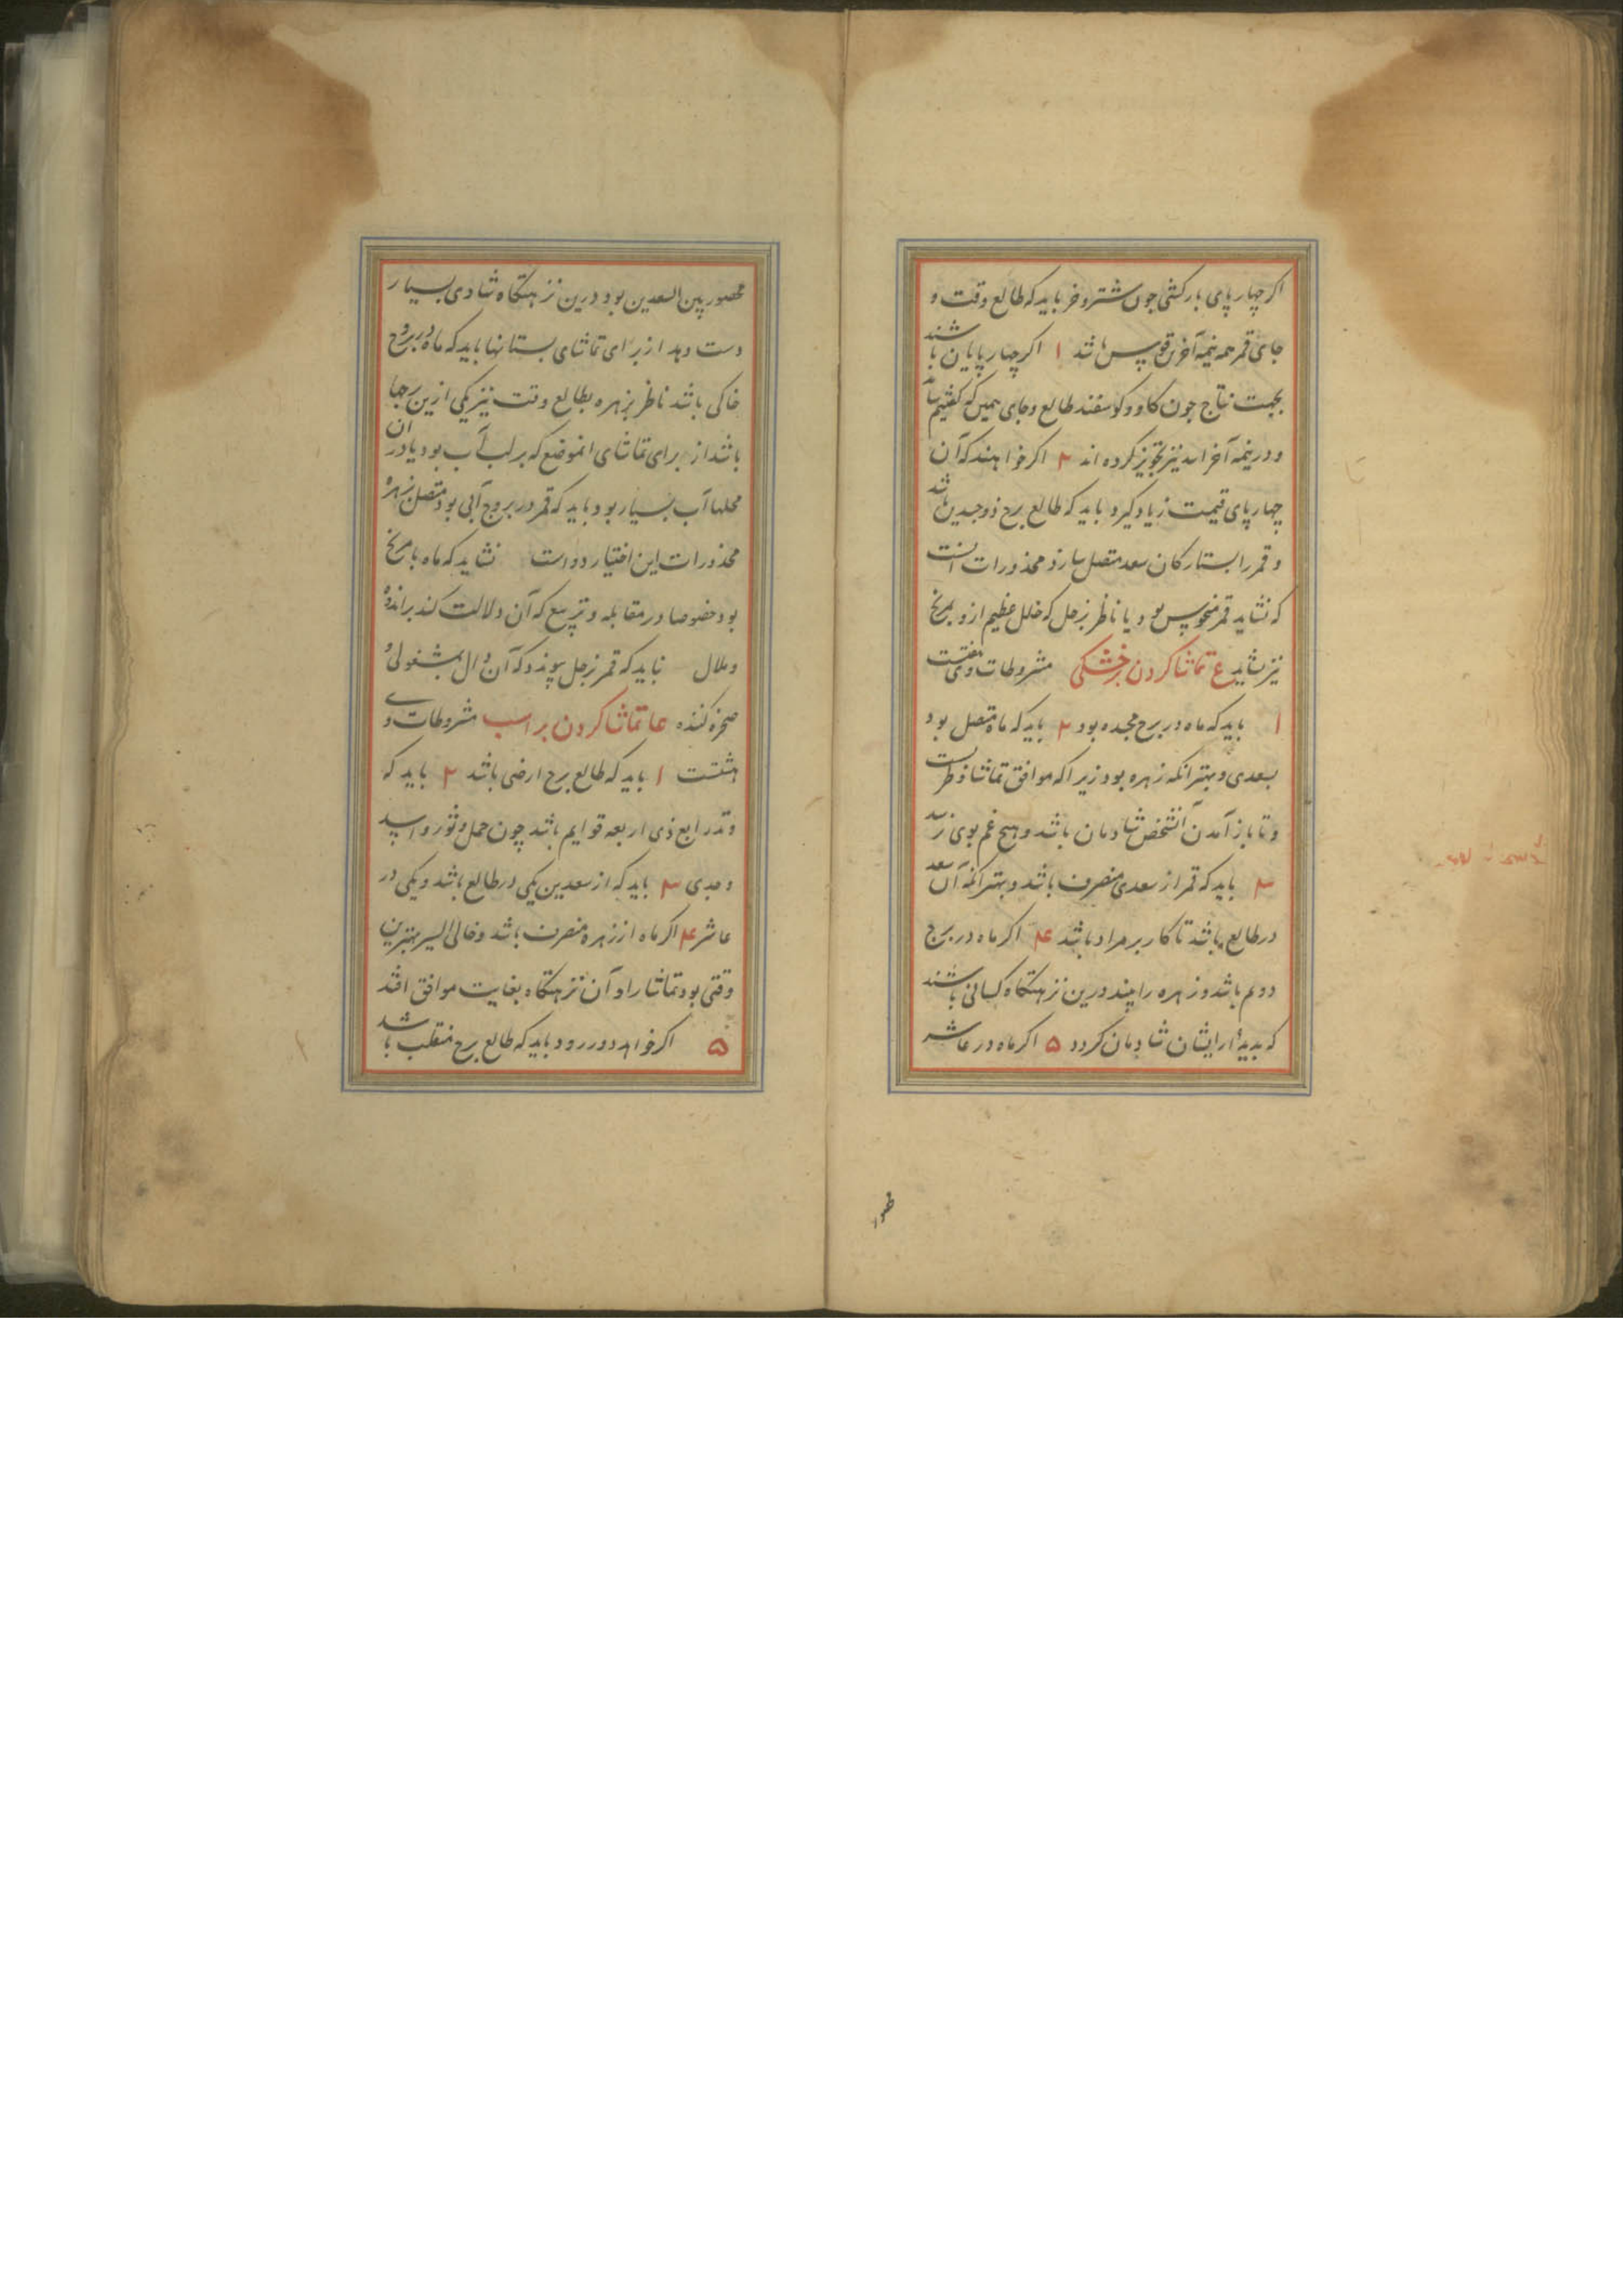 اکر چهار پای بارکشی چون شتر و خر باید که طالع وقت و
جای قمر همه نیمه آخرین قوس باشد ۱ اکر چهار پایان باشند
بجهت نتاج چون کاو و کوسفند طالع و جای همین که کفتیم باید
و در نیمه آخر اسد نیز تجویز کرده اند ۲ اکر خواهند که آن
چهار پای قیمت زیاد کیرد باید که طالع برج ذوجدین باشد
و قمر را بستارکان سعد متصل سازد محذورات آنست
که نشاید قمر منحوس بود یا ناظر بزحل که خلل عظیم ازو بمریخ
نیز نشاید ع تماشا کردن بر خشکی مشروطات وی هفتست
۱ باید که ماه در برج مجسده بود ۲ باید که ماه متصل بود
بسعدی و بهتر آنکه زهره بود زیرا که موافق تماشا و طربست
و تا باز آمدن آنشخص شادمان باشد و هیچ غم بوی نرسد
۳ باید که قمر از سعدی منصرف باشد و بهتر آنکه آن سعد
در طالع باشد تا کار بر مراد باشد ۴ اکر ماه در برج
دوم باشد و زهره را بیند درین نزهتکاه کسانی باشند
که بدیدار ایشان شادمان کردد ۵ اکر ماه در عاشر
محصور بین السعدین بود درین نزهتکاه شادی بسیار
دست دهد از برای تماشای بستانها باید که ماه در بروج
خاکی باشد ناظر بزهره بطالع وقت نیز یکی ازین برجها
باشد از برای تماشای انموضع که بر لب آب بود یا در ان
محلها آب بسیار بود باید که قمر در بروج آبی بود متصل بزهره
محذورات این اختیار دو است نشاید که ماه با مریخ
بود خصوصا در مقابله و تربیع که آن دلالت کند بر اندوه
و ملال نباید که قمر بزحل پیوندد که آن دال بمشغولی و
ضجرة کننده عا تماشا کردن بر اسب مشروطات وی
هشتست ۱ باید که طالع برج ارضی باشد ۲ باید که
وتد رابع ذی اربعه قوایم باشد چون حمل و ثور و اسد
و جدی ۳ باید که از سعدین یکی در طالع باشد و یکی در
عاشر ۴ اکر ماه از زهره منصرف باشد و خالی السیر بهترین
وقتی بود تماشا را و آن نزهتکاه بغایت موافق افتد
۵ اکر خواهد دور رود باید که طالع برج منقلب باشد